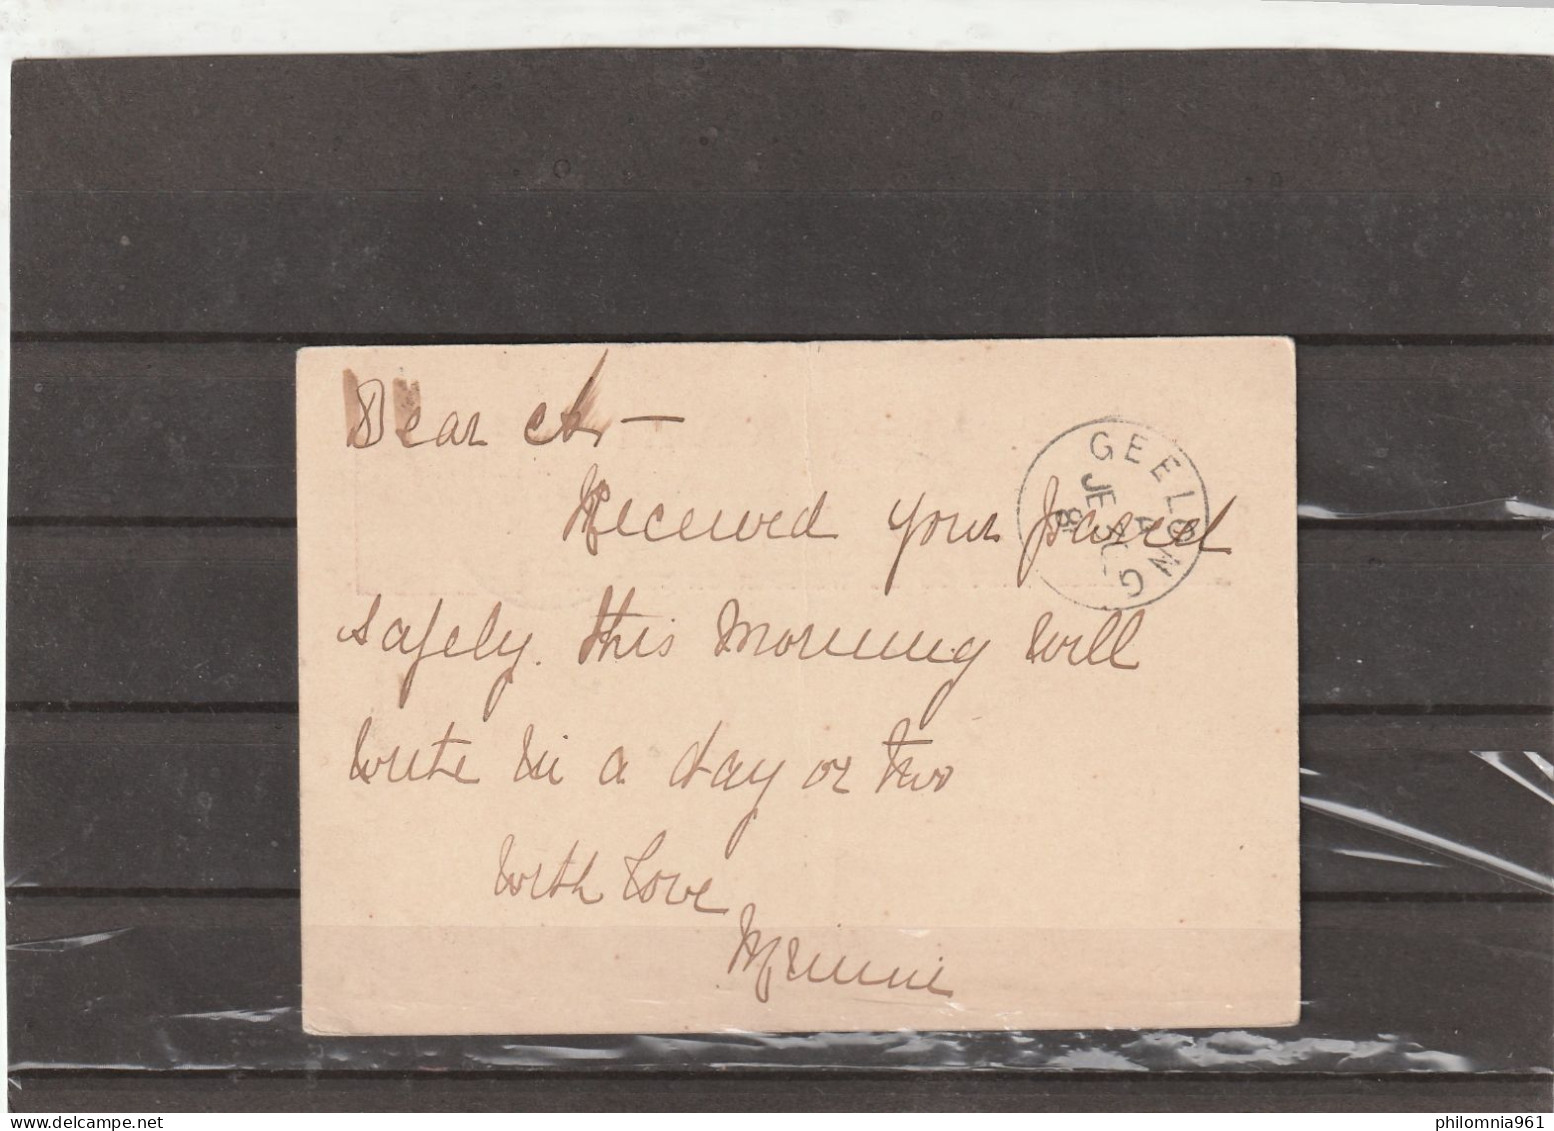 Dear
Received your parcel
safely. this morning will
write in a day or two
With Love
Minnie
GEELONG
A
JE
81
philomnia961